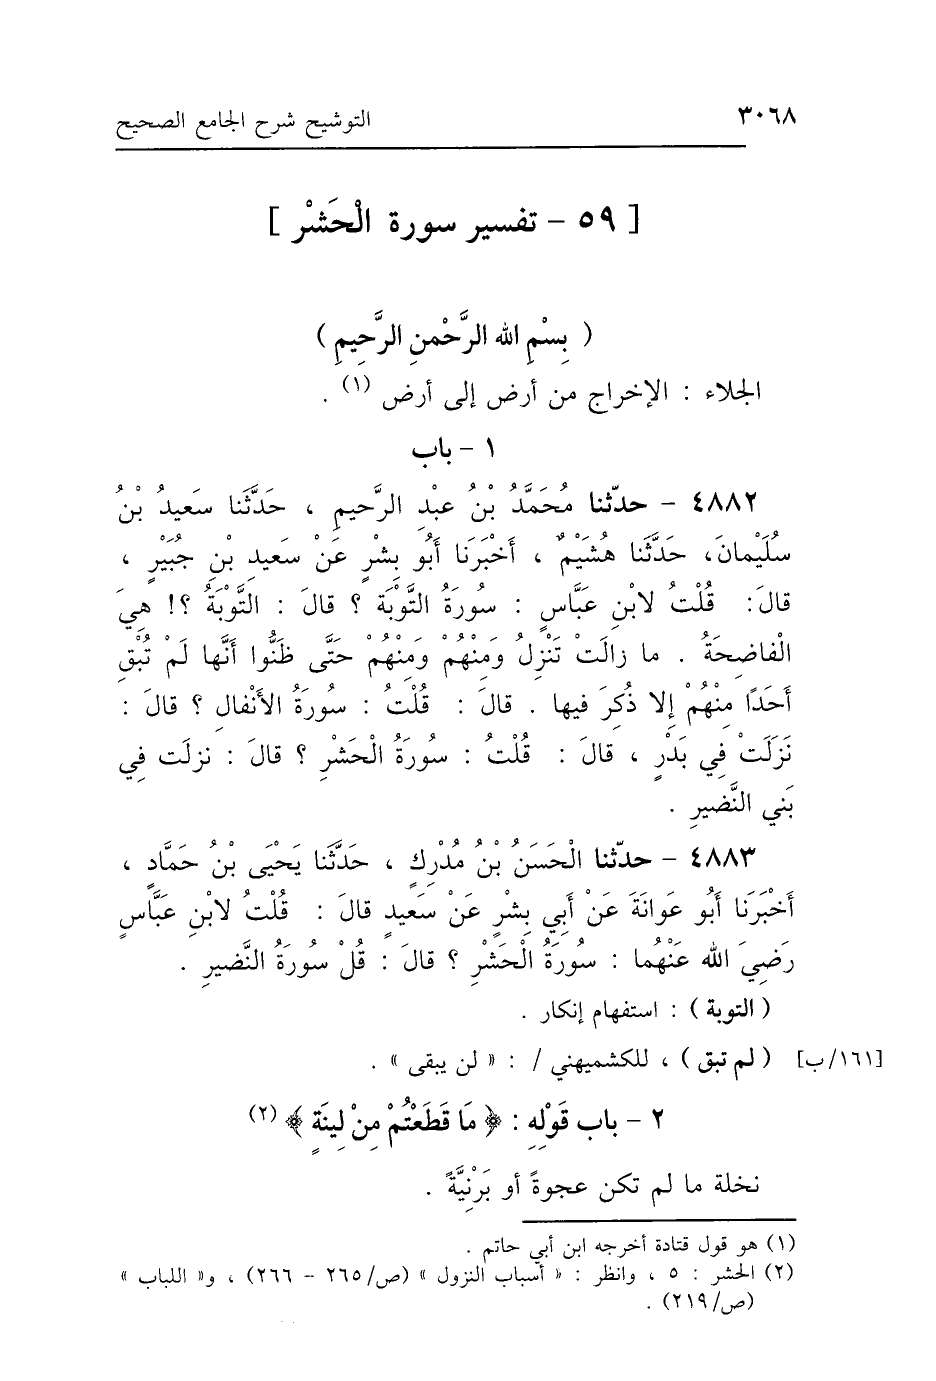 ٣٠٦٨ التوشيح شرح الجامع الصحيح
[ ٥٩ - تفسير سورة الْحَشْر ]
( بِسْمِ الله الرَّحْمنِ الرَّحِيمِ )
الجلاء : الإخراج من أرض إلى أرض (١) .
١ - باب
٤٨٨٢ - حدّثنا مُحَمَّدُ بْنُ عبْدِ الرَّحيمِ ، حَدَّثَنا سَعيدُ بْنُ
سُلَيْمانَ، حَدَّثَنا هُشَيْمٌ ، أَخْبَرَنا أَبُو بِشْرٍ عَنْ سَعيدِ بْنِ جُبَيْرٍ ،
قالَ: قُلْتُ لابْنِ عَبَّاسٍ : سُورَةُ التَّوْبَة ؟ قالَ : التَّوْبَةُ ؟! هِيَ
الْفاضِحَةُ . ما زالَتْ تَنْزِلُ وَمِنْهُمْ وَمِنْهُمْ حَتَّى ظَنُّوا أَنَّها لَمْ تُبْقِ
أَحَدًا مِنْهُمْ إِلا ذُكِرَ فيها . قالَ : قُلْتُ : سُورَةُ الأَنْفالِ ؟ قالَ :
نَزَلَتْ فِي بَدْرٍ ، قالَ : قُلْتُ : سُورَةُ الْحَشْرِ ؟ قالَ : نزلَت فِي
بَني النَّضيرِ .
٤٨٨٣ - حدّثنا الْحَسَنُ بْنُ مُدْرِكٍ ، حَدَّثَنا يَحْيَى بْنُ حَمَّادٍ ،
أَخْبَرَنا أَبُو عَوانَةَ عَنْ أَبِي بِشْرٍ عَنْ سَعيدٍ قالَ : قُلْتُ لابْنِ عَبَّاسٍ
رَضِيَ الله عَنْهُما : سُورَةُ الْحَشْرِ ؟ قالَ : قُلْ سُورَةُ النَّضيرِ .
( التوبة ) : استفهام إنكار .
[١٦١/ب] ( لم تبق ) ، للكشميهني / : « لن يبقى » .
٢ - باب قَوْلِهِ : ﴿ مَا قَطَعْتُمْ مِنْ لِينَةٍ ﴾ (٢)
نخلة ما لم تكن عجوةً أو بَرْنِيَّةً .
(١) هو قول قتادة أخرجه ابن أبي حاتم .
(٢) الحشر : ٥ ، وانظر : « أسباب النزول » (ص/٢٦٥ - ٢٦٦) ، و« اللباب »
(ص/٢١٩) .